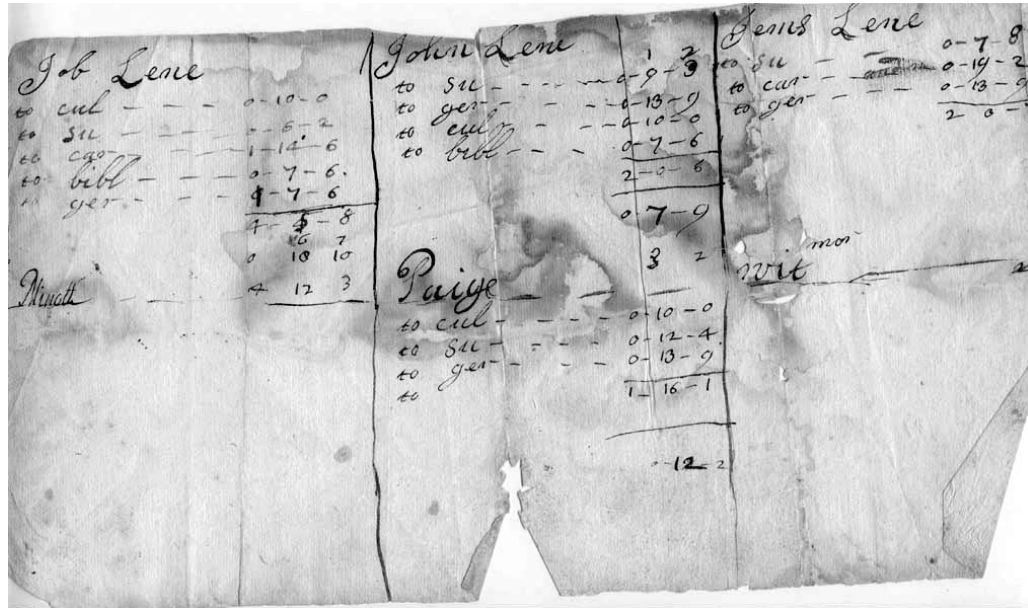 Job Lene
to cul - - - 0-10-0
to Su - - - 0-6-2
to car - - - 1-14-6
to bibl - - - 0-7-6.
to ger - - - 1-7-6
4 - 5 - 8
6 7
0 10 10
4 12 3
John Lene
1 2
to Su - - - 0-9-3
to ger - - - 0-13-9
to cul - - - 0-10-0
to bibl - - - 0-7-6
2-0-6
0-7-9
3 2
Paige
to cul - - - 0-10-0
to Su - - - 0-12-4
to ger - - - 0-13-9
to
1-16-1
0-12-2
Jems Lene
0-7-8
to Su - 0-19-2
to car - 0-13-9
to ger - - -
2 0 -
wit mor